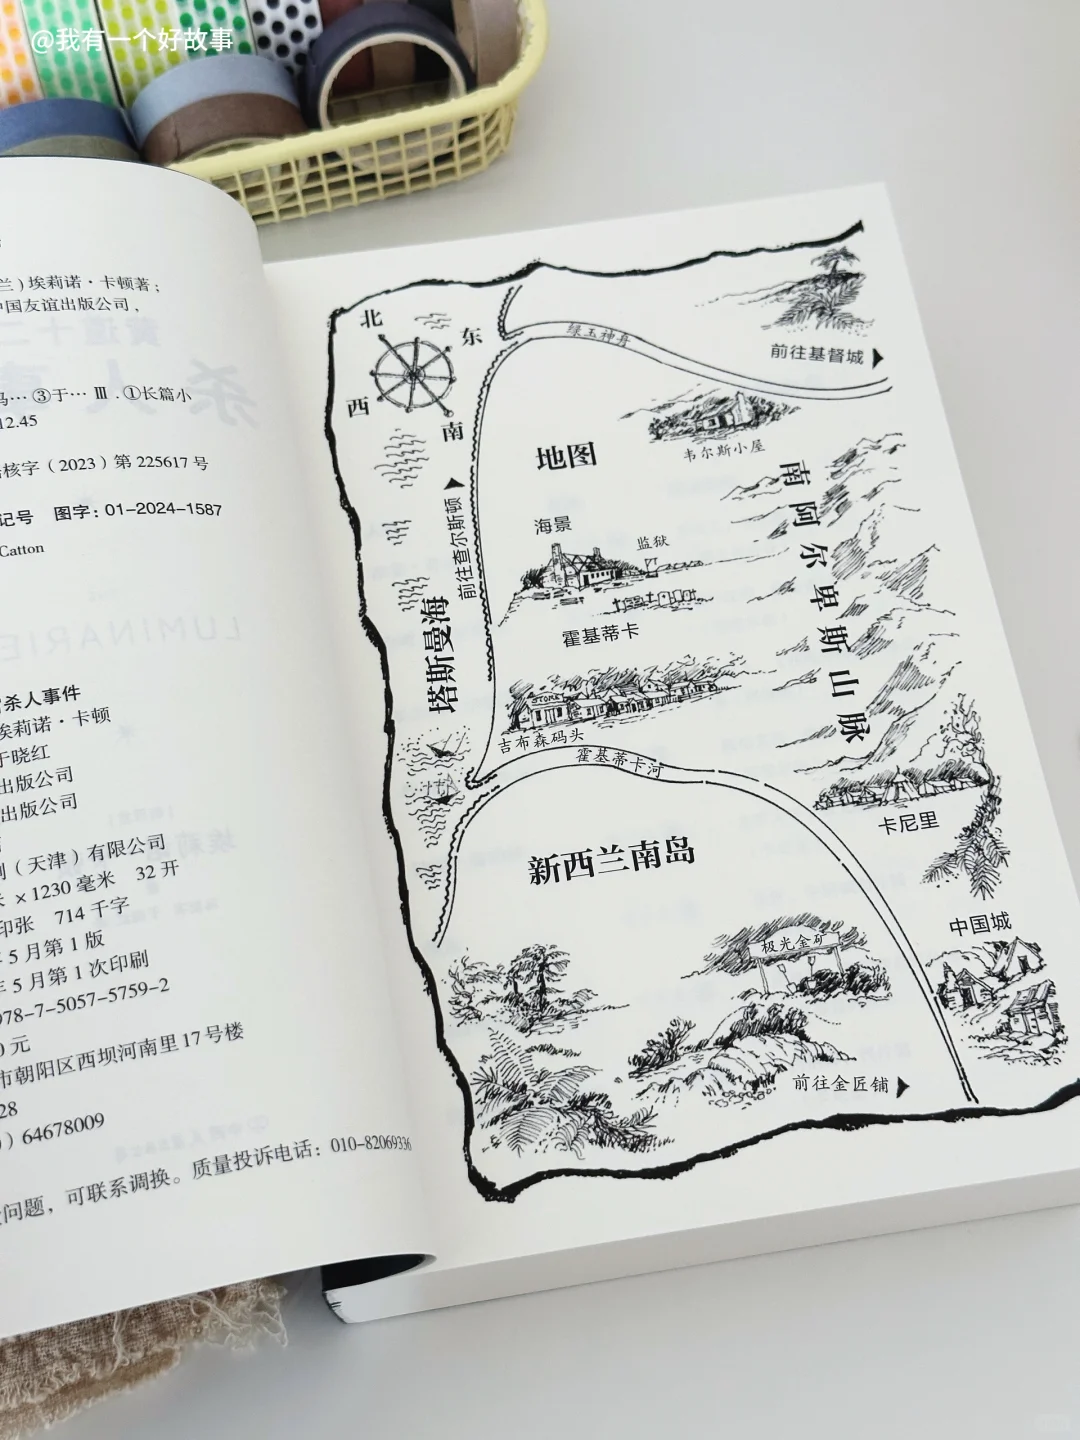 @我有一个好故事
兰）埃莉诺·卡顿著；
中国友谊出版公司，
③于… Ⅲ .①长篇小
12.45
核字（2023）第 225617 号
记号 图字：01-2024-1587
Catton
杀人事件
埃莉诺·卡顿
于晓红
出版公司
出版公司
（天津）有限公司
×1230 毫米 32 开
印张 714 千字
5 月第 1 版
5 月第 1 次印刷
978-7-5057-5759-2
元
市朝阳区西坝河南里 17 号楼
28
）64678009
问题，可联系调换。质量投诉电话：010-82069336
北
东
西
南
绿玉神舟
前往基督城
韦尔斯小屋
地图
南阿尔卑斯山脉
海景
监狱
前往查尔斯顿
霍基蒂卡
塔斯曼海
STORE
吉布森码头
霍基蒂卡河
卡尼里
新西兰南岛
中国城
极光金矿
前往金匠铺